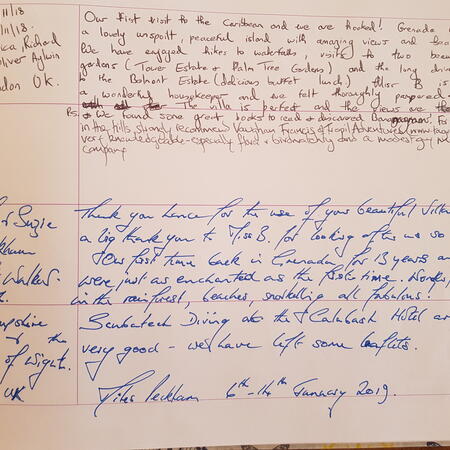 11/18
11/18.
Richard
Oliver Aylwin
London UK.
Our first visit to the Caribbean and we are hooked! Grenada
a lovely unspoilt, peaceful island with amazing views and
We have enjoyed hikes to waterfalls, visits to two
gardens (Tower Estate & Palm Tree Gardens) and the long
to the Belmont Estate (delicious buffet lunch) Miss B
a wonderful housekeeper and we felt thoroughly pampered
The villa is perfect and the views
Ps. We found some great books to read & discovered Bananagram! For
in the hills strongly recommend Vaughan Francis of
very knowledgeable - especially flora & birds
company
Suzie
Walker
Thank you Lance for the use of your beautiful Villa
a big thank you to Miss B. for looking after us so
Our first time back in Grenada for 13 years and
were just as enchanted as the first time.
in the rainforest, beaches, snorkelling all fabulous!
& the
of Wight.
UK
Scubatech Diving at the Calabash Hotel
very good - we have left some leaflets.
6th - 14th January 2019.